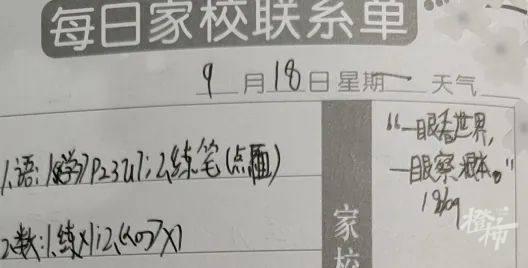 每日家校联系单
9月18日星期一 天气
1.语:1.《学》P23 2.练笔(点面)
"一眼看世界,
一眼察根本。"
2.数:1.练×1;2.
家校
橙柿